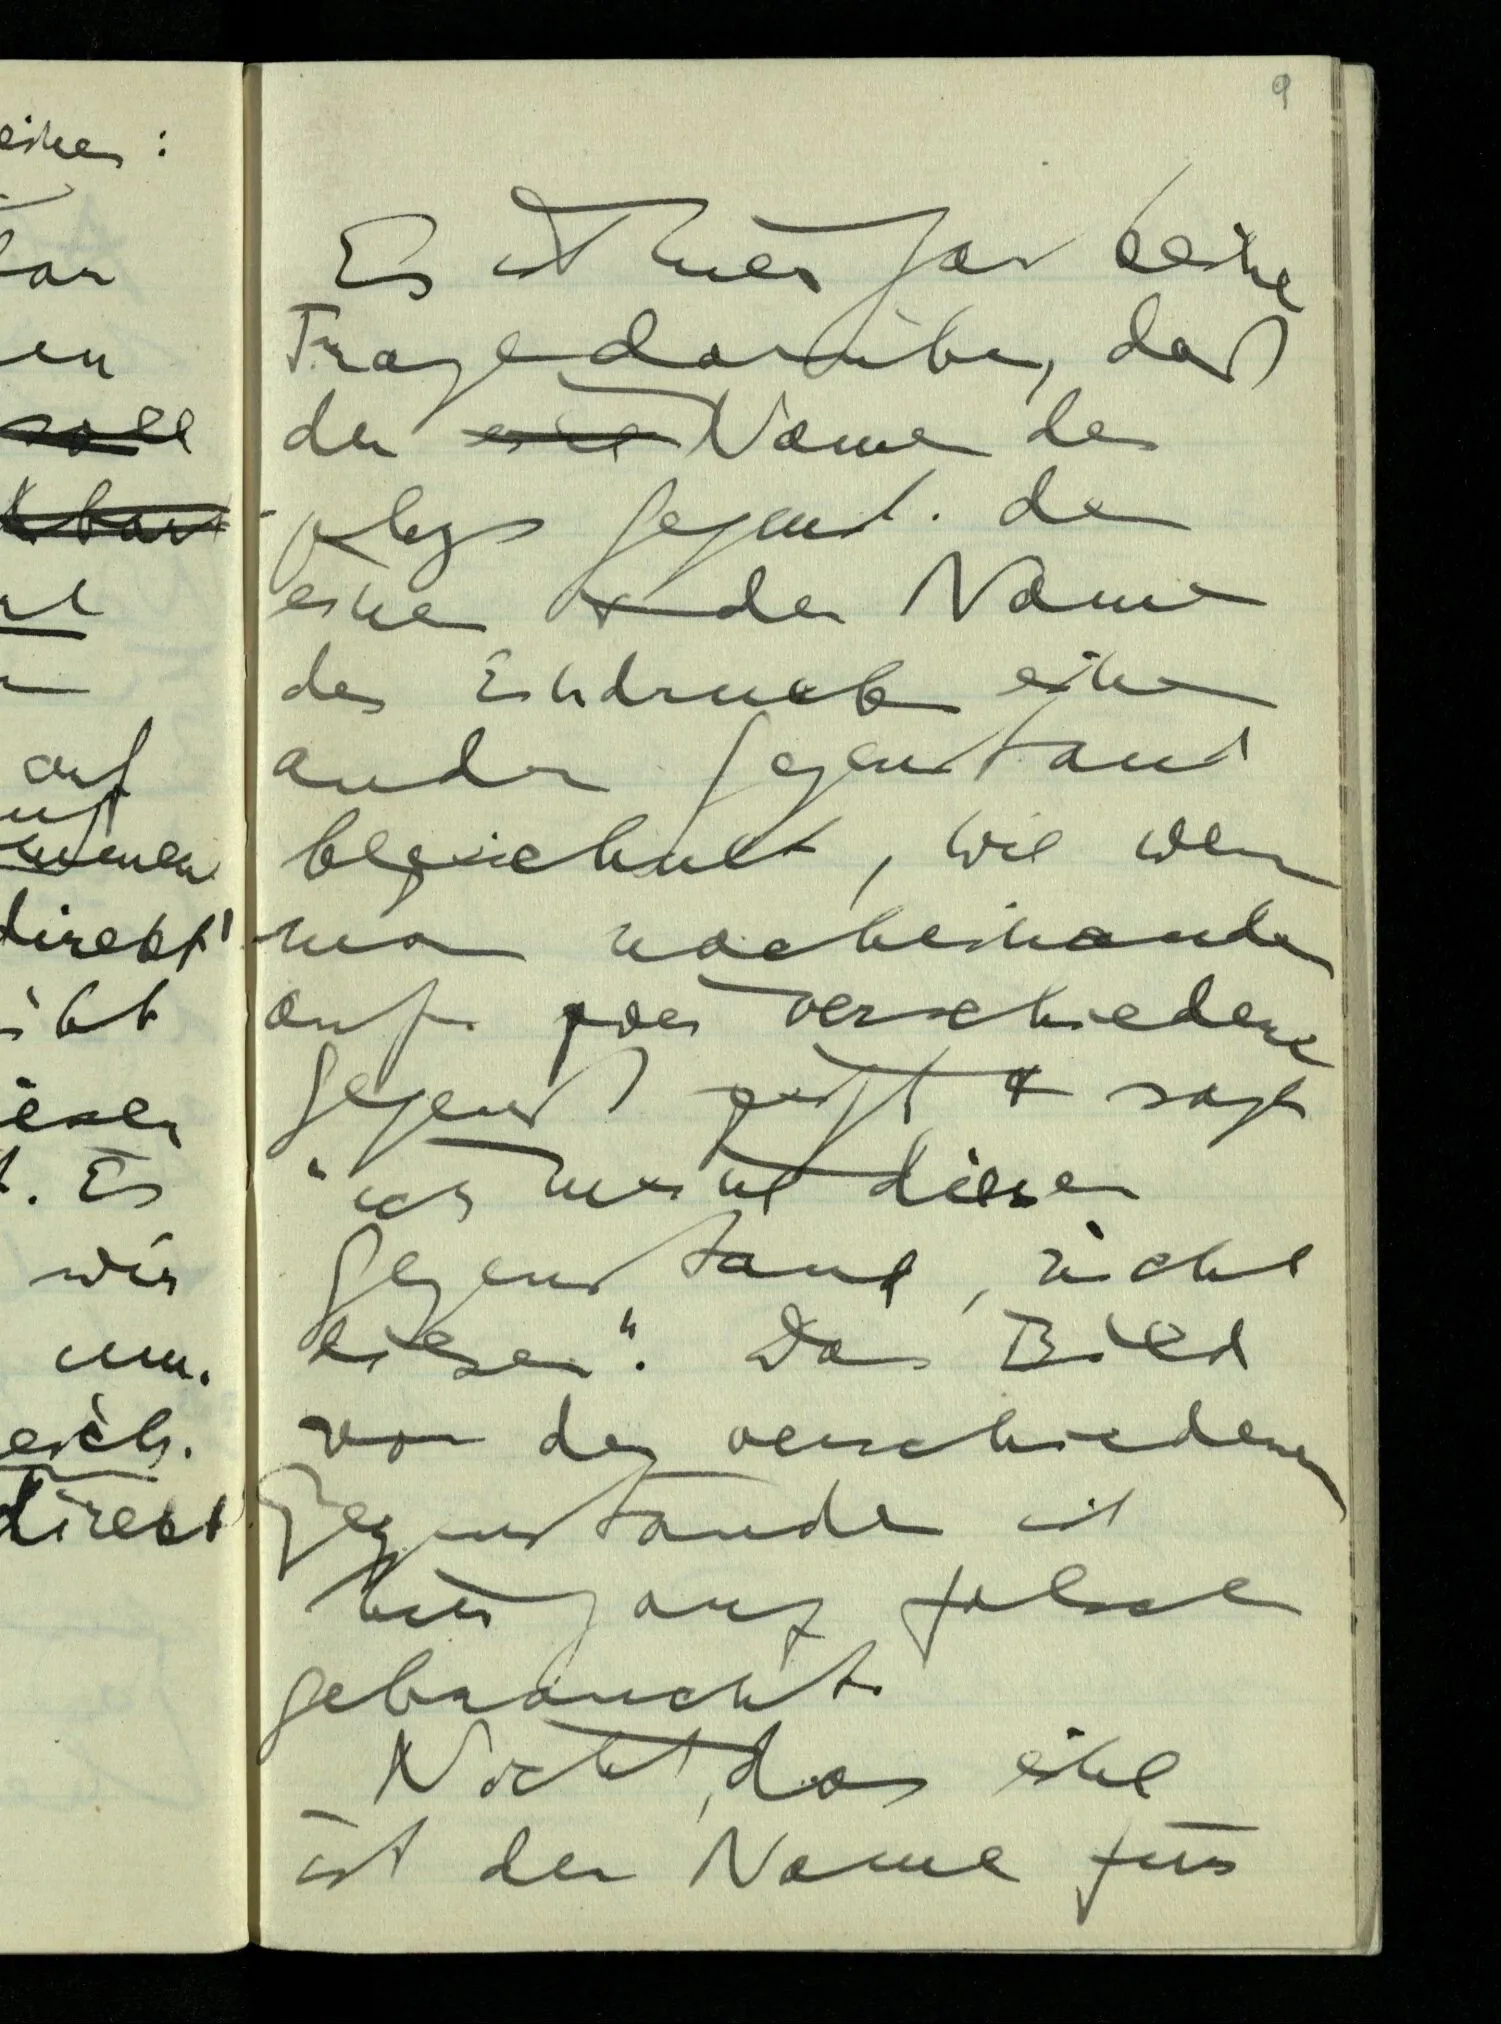 9
einen :
Es ist hier gar keine
Frage darüber, daß
der eine Name den
phys Gegenst. der
eine & der Name
den Eindruck einen
andern Gegenstand
bezeichnet, wie wenn
man nacheinander
auf zwei verschiedene
Gegenst zeigt & sagt
"ich meine diesen
Gegenstand, nicht
diesen". Das Bild
von den verschiedenen
Gegenständen ist
hier ganz falsch
gebraucht.
Nicht, das eine
ist der Name für
en
soll
auf
direkt'
ibt
iesen
t. Es
wir
um.
eich.
direkt